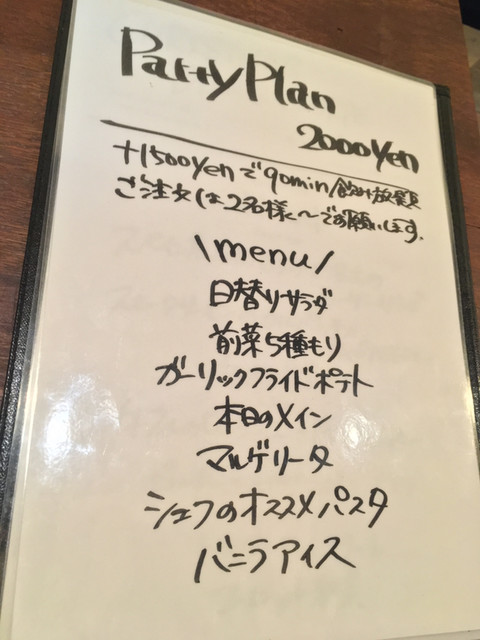 Party Plan
2000Yen
+1500Yenで90min飲み放題
ご注文は2名様〜でお願いします.
\menu/
日替りサラダ
前菜5種もり
ガーリックフライドポテト
本日のメイン
マルゲリータ
シェフのオススメパスタ
バニラアイス